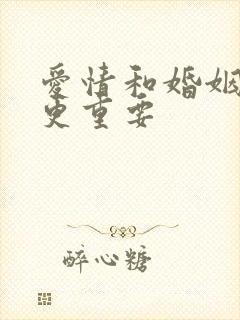 爱情和婚姻
更重要
醉心糖